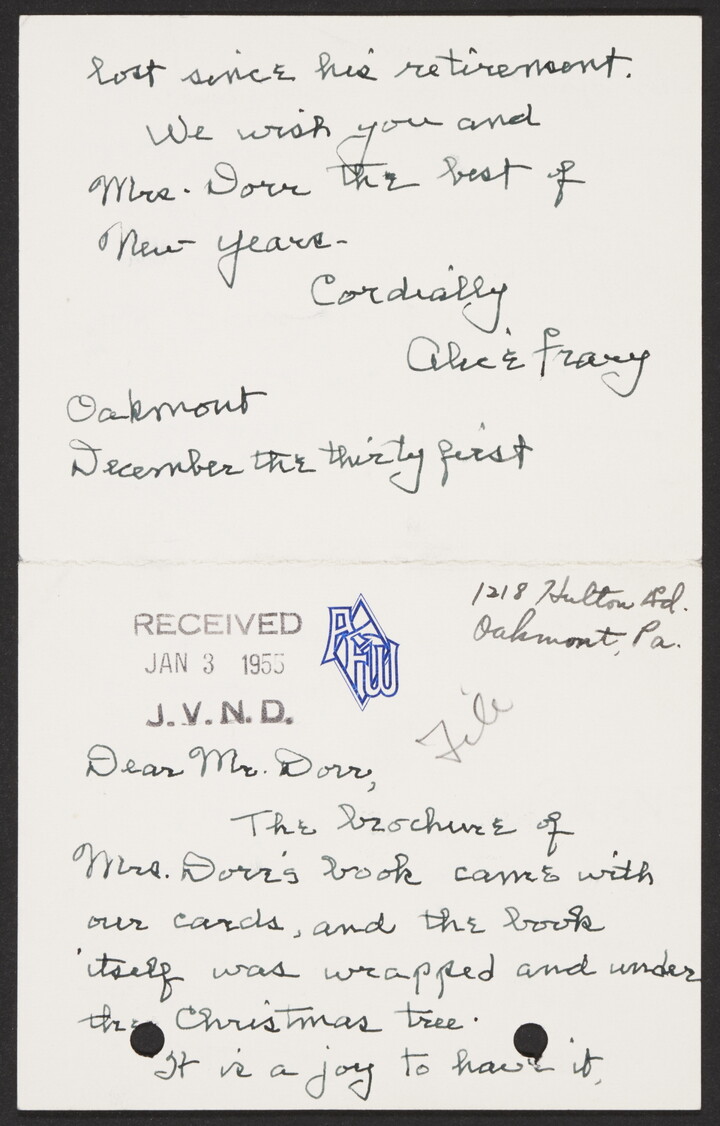 lost since his retirement.
We wish you and
Mrs. Dorr the best of
New Years-
Cordially
Alice Frary
Oakmont
December the thirty first
RECEIVED
JAN 3 1955
J.V.N.D.
AFW
1218 Hulton Rd.
Oakmont, Pa.
File
Dear Mr. Dorr,
The brochure of
Mrs. Dorr's book came with
our cards, and the book
itself was wrapped and under
the Christmas tree.
It is a joy to have it,